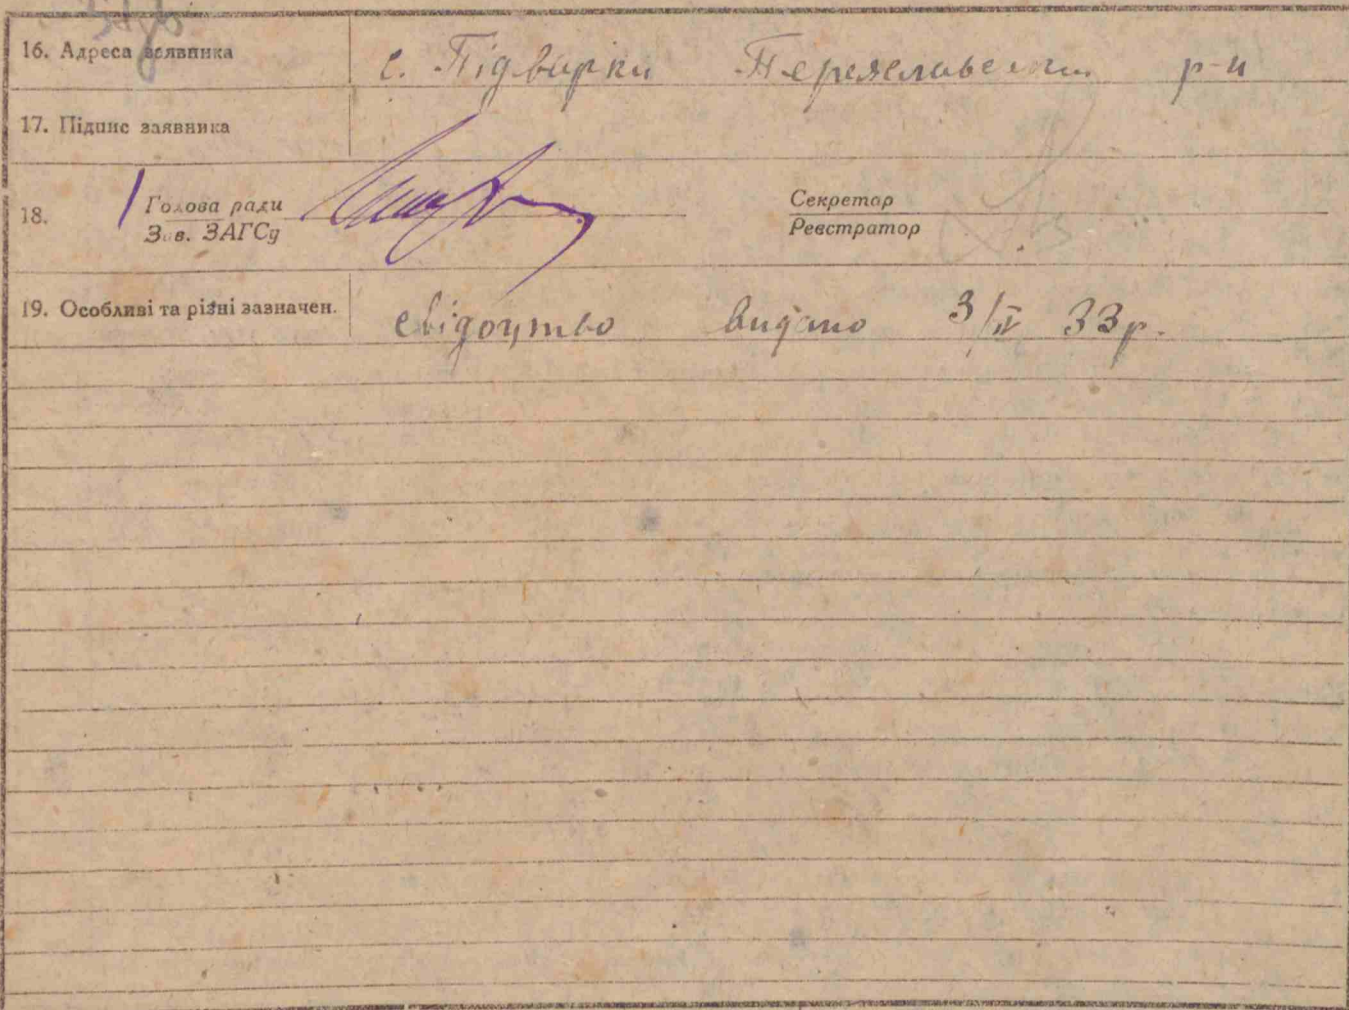 16. Адреса заявника с. Підварки Переяславськ. р-н
17. Підпис заявника
18. Голова ради Секретар
Зав. ЗАГСу Реєстратор
19. Особливі та різні зазначен. свідоцтво видано 3/IV 33р.